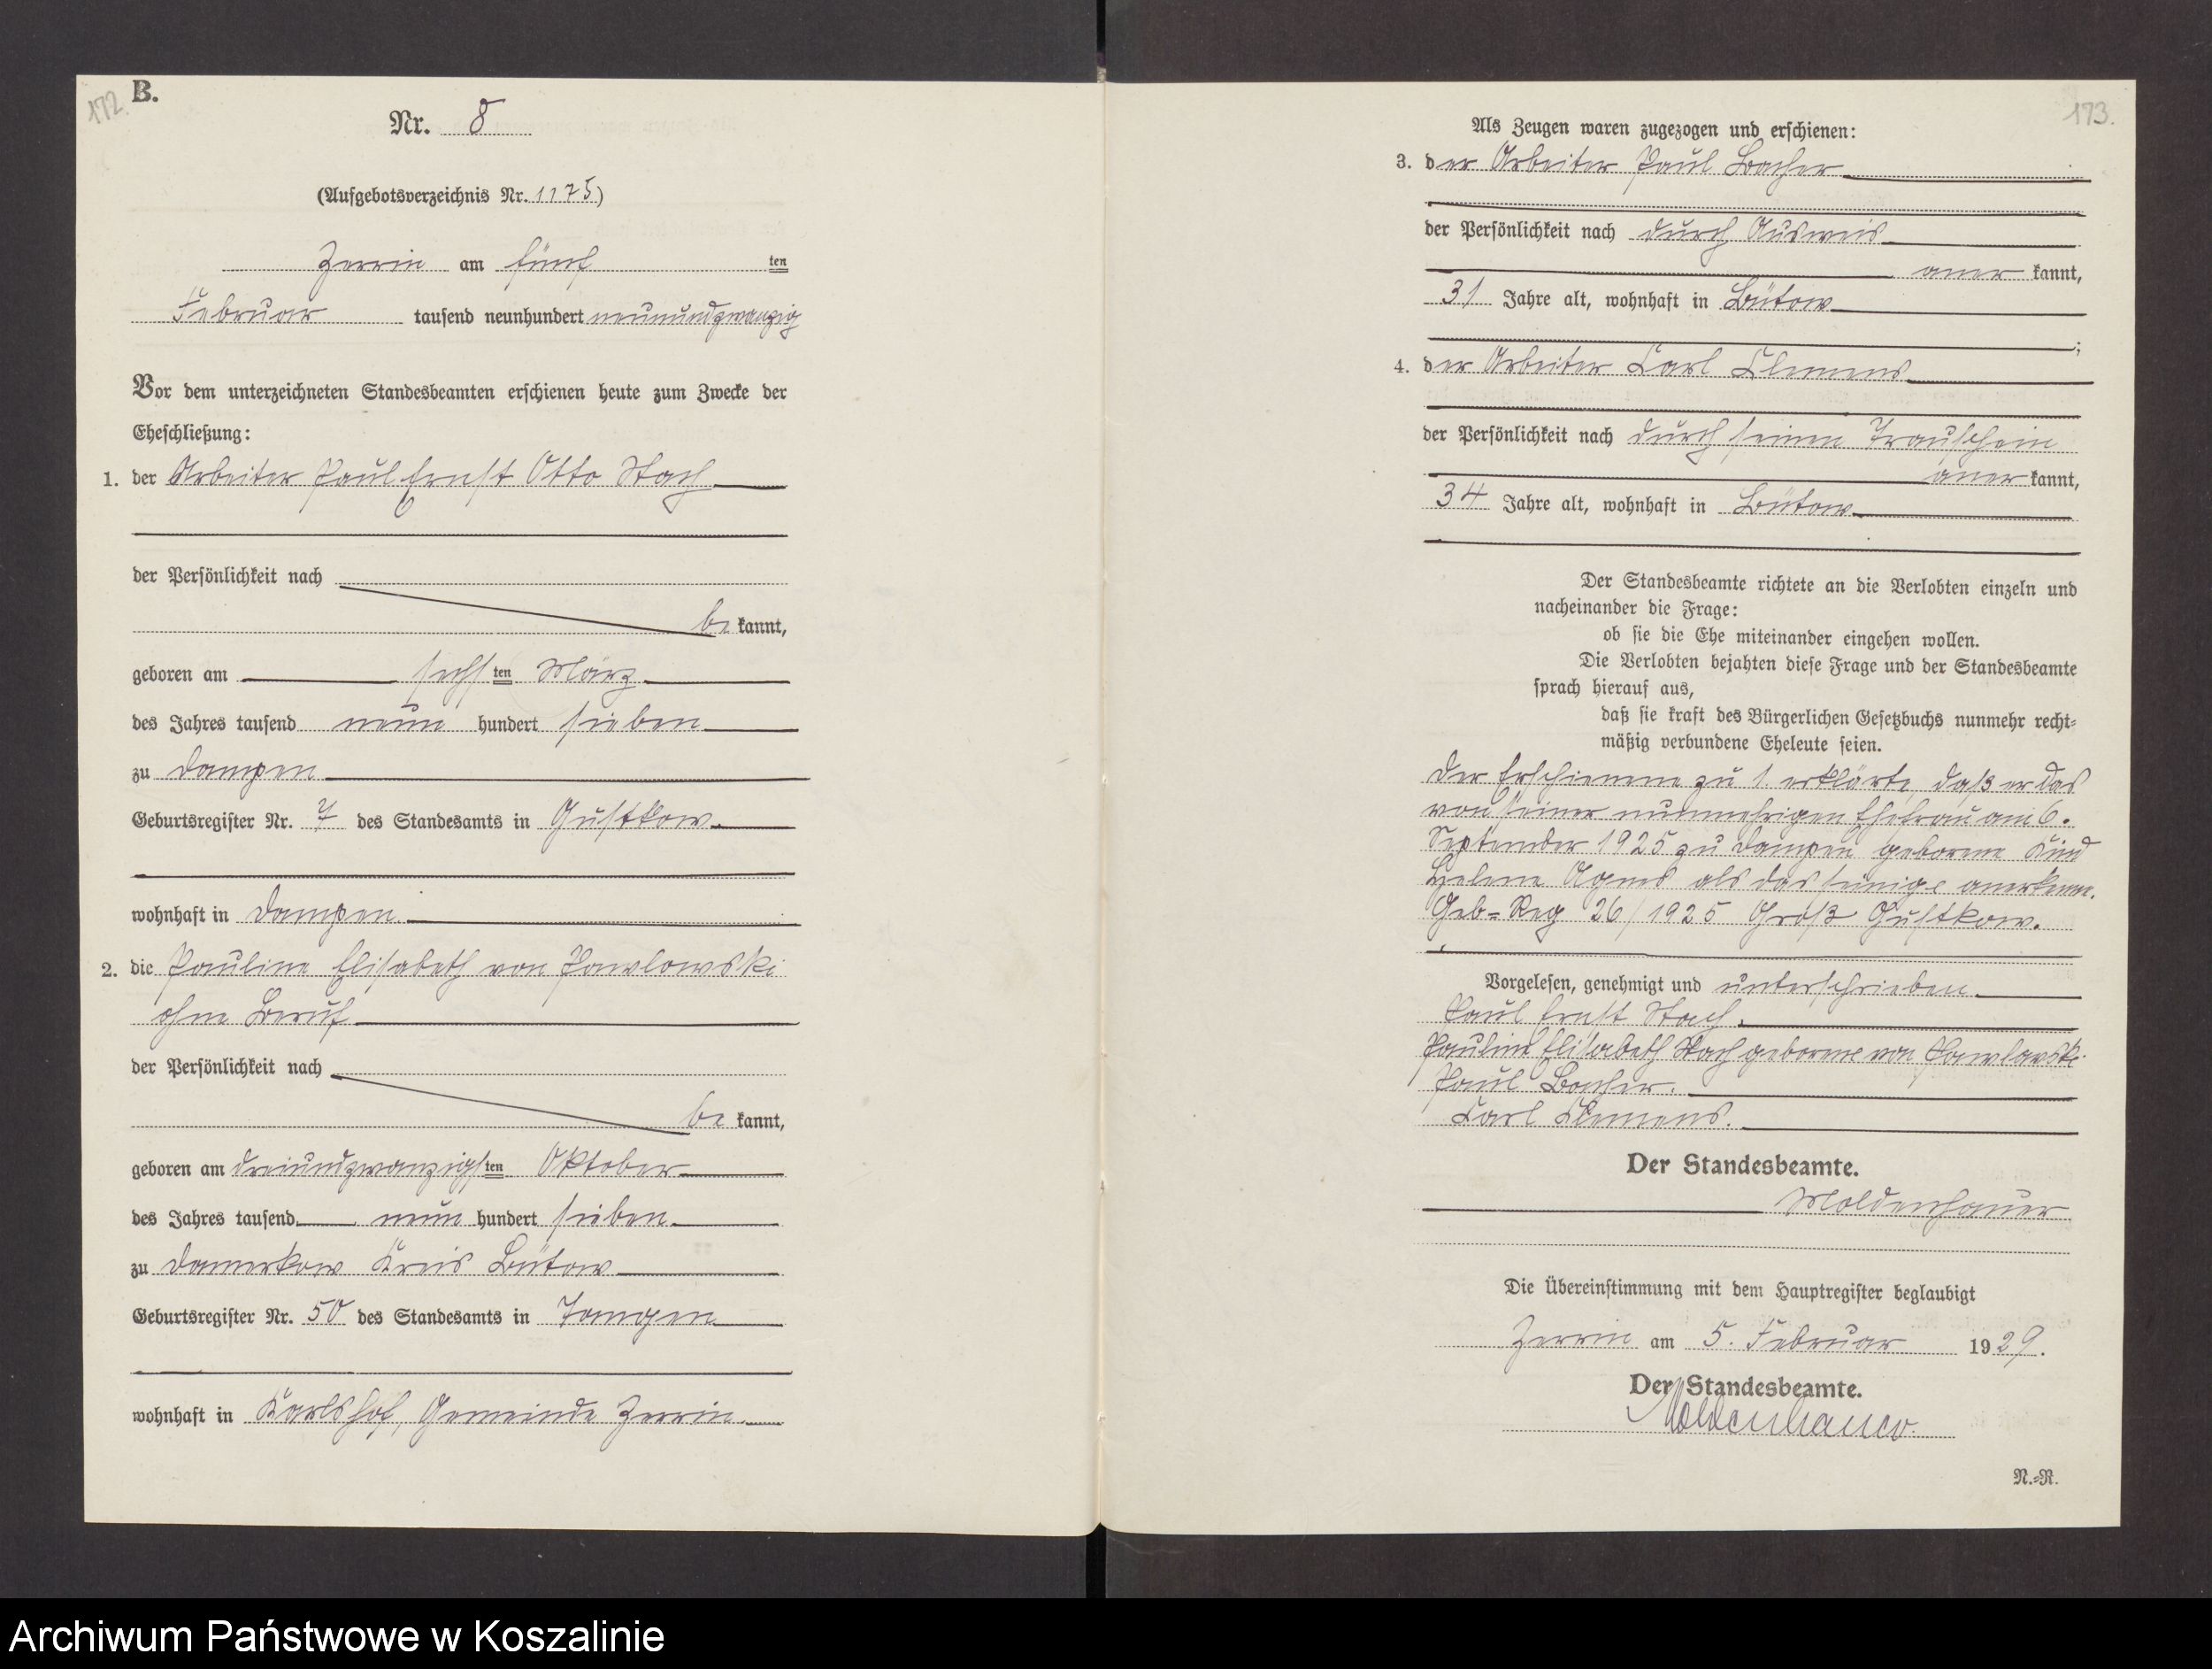 172.
B.
Nr. 8
(Aufgebotsverzeichnis Nr. 1175)
Zerrin am fünf ten
Februar tausend neunhundert neunundzwanzig
Vor dem unterzeichneten Standesbeamten erschienen heute zum Zwecke der
Eheschließung:
1. der Arbeiter Paul Ernst Otto Stach
der Persönlichkeit nach
be kannt,
geboren am sechs ten März
des Jahres tausend neun hundert sieben
zu Dampen
Geburtsregister Nr. 7 des Standesamts in Gustkow.
wohnhaft in Dampen
2. die Pauline Elisabeth von Pawlowski
ohne Beruf
der Persönlichkeit nach
be kannt,
geboren am dreiundzwanzigs ten Oktober
des Jahres tausend neun hundert sieben
zu Damerkow Kreis Bütow
Geburtsregister Nr. 50 des Standesamts in Tangen
wohnhaft in Karlshof, Gemeinde Zerrin
173.
Als Zeugen waren zugezogen und erschienen:
3. der Arbeiter Paul Bacher
der Persönlichkeit nach durch Ausweis
aner kannt,
31 Jahre alt, wohnhaft in Bütow
;
4. der Arbeiter Carl Clemens
der Persönlichkeit nach durch seinen Trauschein
aner kannt,
34 Jahre alt, wohnhaft in Bütow
Der Standesbeamte richtete an die Verlobten einzeln und
nacheinander die Frage:
ob sie die Ehe miteinander eingehen wollen.
Die Verlobten bejahten diese Frage und der Standesbeamte
sprach hierauf aus,
daß sie kraft des Bürgerlichen Gesetzbuchs nunmehr recht-
mäßig verbundene Eheleute seien.
Der Erschienene zu 1. erklärte, daß er das
von seiner nunmehrigen Ehefrau am 6.
September 1925 zu Dampen geborene Kind
Helene Agnes als das seinige anerkenne.
Geb=Reg 26/1925 Groß Gustkow.
Vorgelesen, genehmigt und unterschrieben
Paul Ernst Stach.
Pauline Elisabeth Stach geborene von Pawlowski.
Paul Bacher.
Carl Clemens.
Der Standesbeamte.
Moldenhauer
Die Übereinstimmung mit dem Hauptregister beglaubigt
Zerrin am 5. Februar 1929.
Der Standesbeamte.
Moldenhauer.
N.-R.
Archiwum Państwowe w Koszalinie